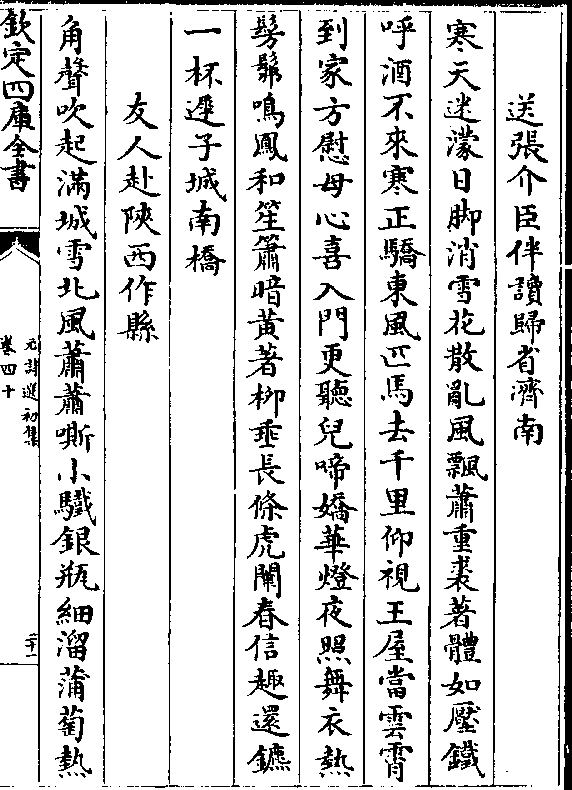 送張介臣伴讀歸省濟南
寒天迷濛日脚消雪花散亂風飄蕭重裘著體如壓鐵
呼酒不來寒正驕東風匹馬去千里仰視王屋當雲霄
到家方慰母心喜入門更聽兒啼嬌華燈夜照舞衣熱
髣髴鳴鳳和笙簫暗黄著栁垂長條虎闈春信趣還鑣
一杯遲子城南橋
友人赴陜西作縣
角聲吹起滿城雪北風蕭蕭嘶小驖銀瓶細溜蒲萄熱
欽定四庫全書
元詩選初集
卷四十
二十一